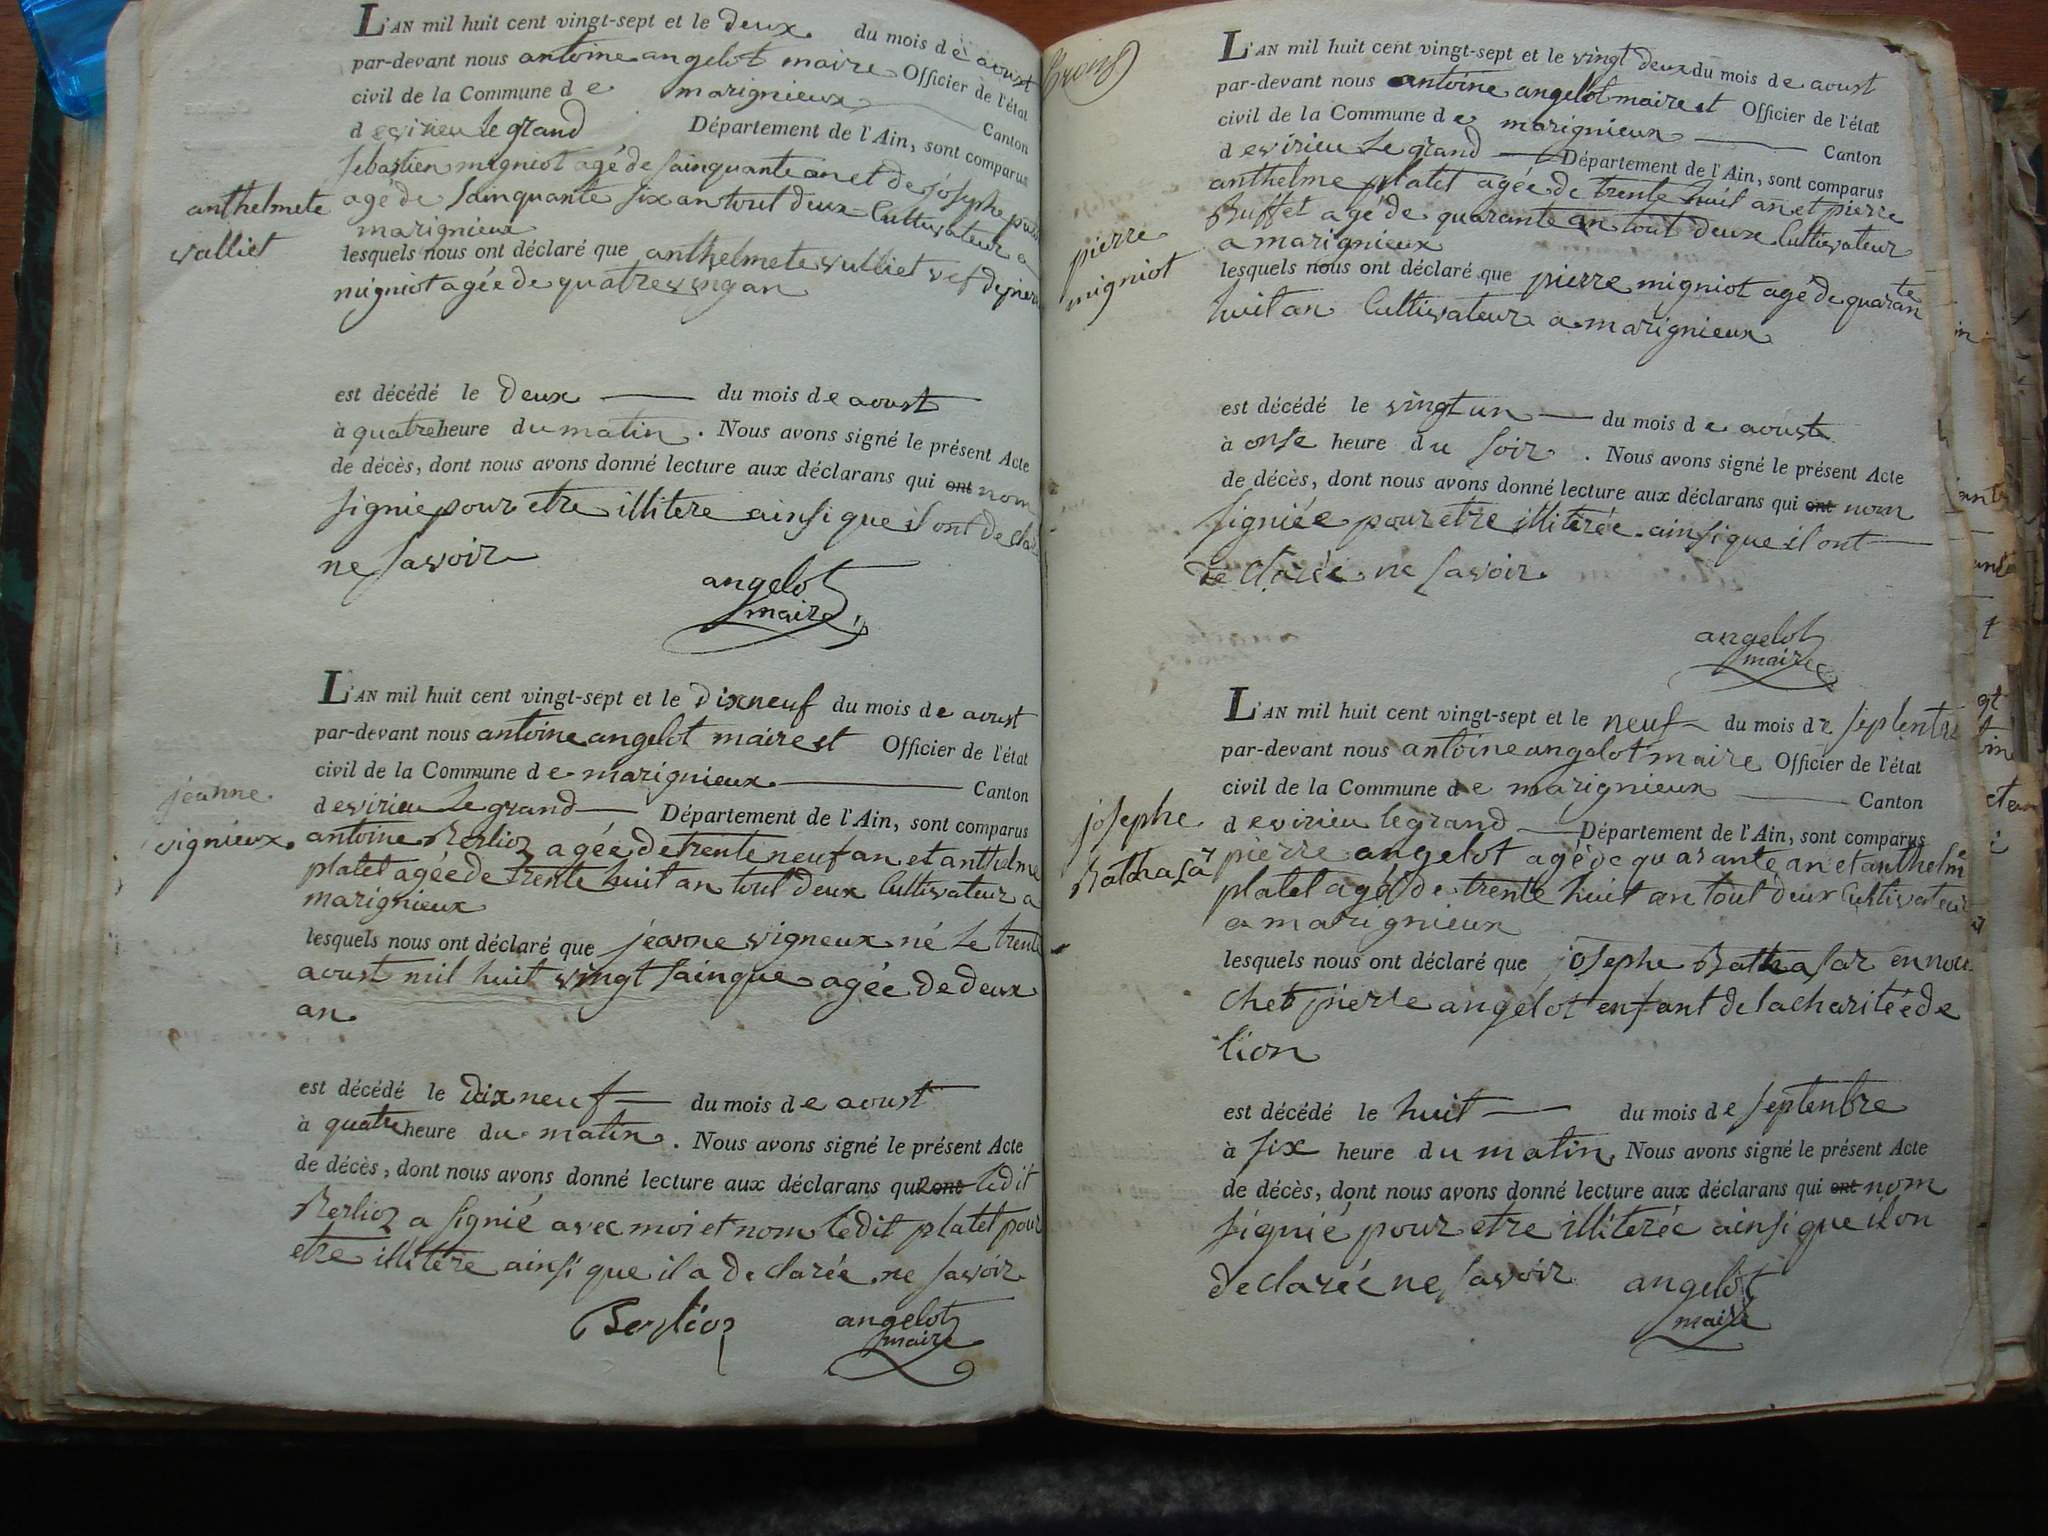 L'AN mil huit cent vingt-sept et le deux du mois de aoust
par-devant nous antoine angelot maire Officier de l'état
civil de la Commune de marignieux Canton
de virieu le grand Département de l'Ain, sont comparus
sebastien migniot agé de sainquante an et de josephe
agé de sainquante six an tout deux Cultivateur a
marignieux
anthelmete
vulliet
lesquels nous ont déclaré que anthelmete vulliet vef de pierre
migniot agée de quatre ving an
est décédé le deux du mois de aoust
à quatre heure du matin. Nous avons signé le présent Acte
de décès, dont nous avons donné lecture aux déclarans qui ont nom
signie pour etre illitere ainsi que il ont
ne savoir
angelot
maire
L'AN mil huit cent vingt-sept et le dixneuf du mois de aoust
par-devant nous antoine angelot maire et Officier de l'état
civil de la Commune de marignieux Canton
de virieu le grand Département de l'Ain, sont comparus
jeanne
vignieux
antoine Berlioz agée de trente neuf an et anthelme
platet agée de trente huit an tout deux Cultivateur a
marignieux
lesquels nous ont déclaré que jeanne vigneux né le trente
aoust mil huit vingt sainque agée de deux
an
est décédé le dixneuf du mois de aoust
à quatre heure du matin. Nous avons signé le présent Acte
de décès, dont nous avons donné lecture aux déclarans qui ont ledit
Berlioz a signié avec moi et nom ledit platet pour
etre illitere ainsi que il a declarée ne savoir
Berlioz angelot
maire
L'AN mil huit cent vingt-sept et le vingt deux du mois de aoust
par-devant nous antoine angelot maire et Officier de l'état
civil de la Commune de marignieux Canton
de virieu le grand Département de l'Ain, sont comparus
anthelme platet agée de trente huit an et pierre
Buffet agé de quarante an tout deux Cultivateur
a marignieux
pierre
migniot
lesquels nous ont déclaré que pierre migniot agé de quarante
huit an Cultivateur a marignieux
est décédé le vingt un du mois de aoust
à onse heure du soir. Nous avons signé le présent Acte
de décès, dont nous avons donné lecture aux déclarans qui ont nom
signiée pour etre illiterée ainsi que il ont
declarée ne savoir
angelot
maire
L'AN mil huit cent vingt-sept et le neuf du mois de septenbre
par-devant nous antoine angelot maire Officier de l'état
civil de la Commune de marignieux Canton
de virieu le grand Département de l'Ain, sont comparus
josephe
Bathasar
pierre angelot agé de quarante an et anthelme
platet agé de trente huit an tout deux Cultivateur
a marignieux
lesquels nous ont déclaré que josephe Bathasar en
chet pierre angelot enfant de la charitée de
lion
est décédé le huit du mois de septenbre
à six heure du matin. Nous avons signé le présent Acte
de décès, dont nous avons donné lecture aux déclarans qui ont nom
signié pour etre illiterée ainsi que il on
declarée ne savoir angelot
maire